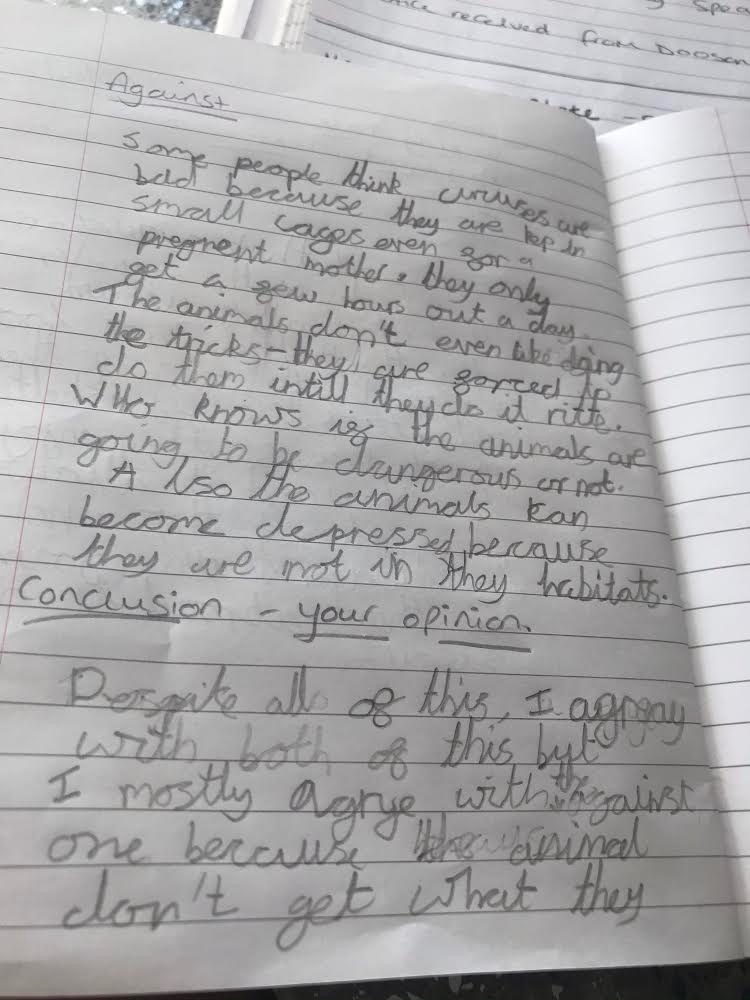 Spea
received from Doosan
Against
Some people think circuses are
bad because they are kep in
small cages even for a
pregnent mother. they only
get a few hours out a day.
The animals don't even like doing
the tricks - they are forced to
do them intill they do it rite.
Who knows if the animals are
going to be dangerous or not.
Also the animals kan
become depressed because
they are not in they habitats.
Conclusion - your opinion.
Despite all of this, I
with both of this byt
I mostly agrye with the against
one because the animal
don't get what they